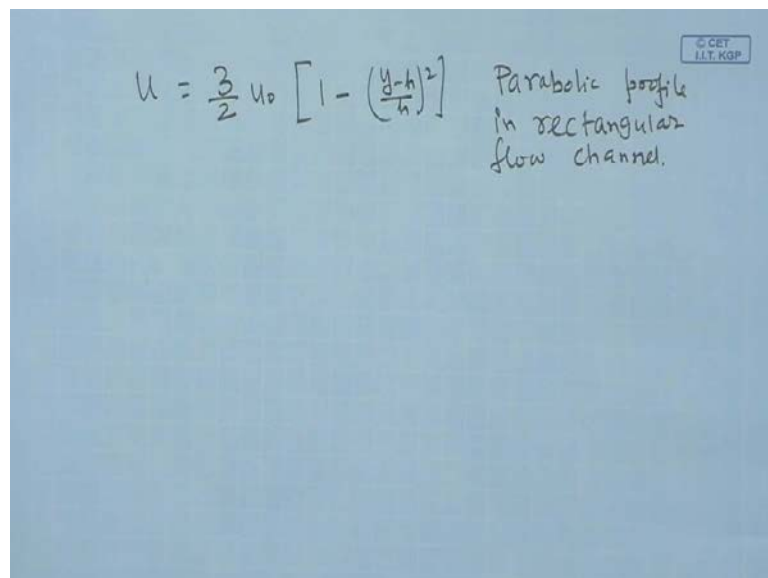 © CET
I.I.T. KGP
u = 3/2 u₀ [1 - ((y-h)/h)²] Parabolic profile
in rectangular
flow channel.